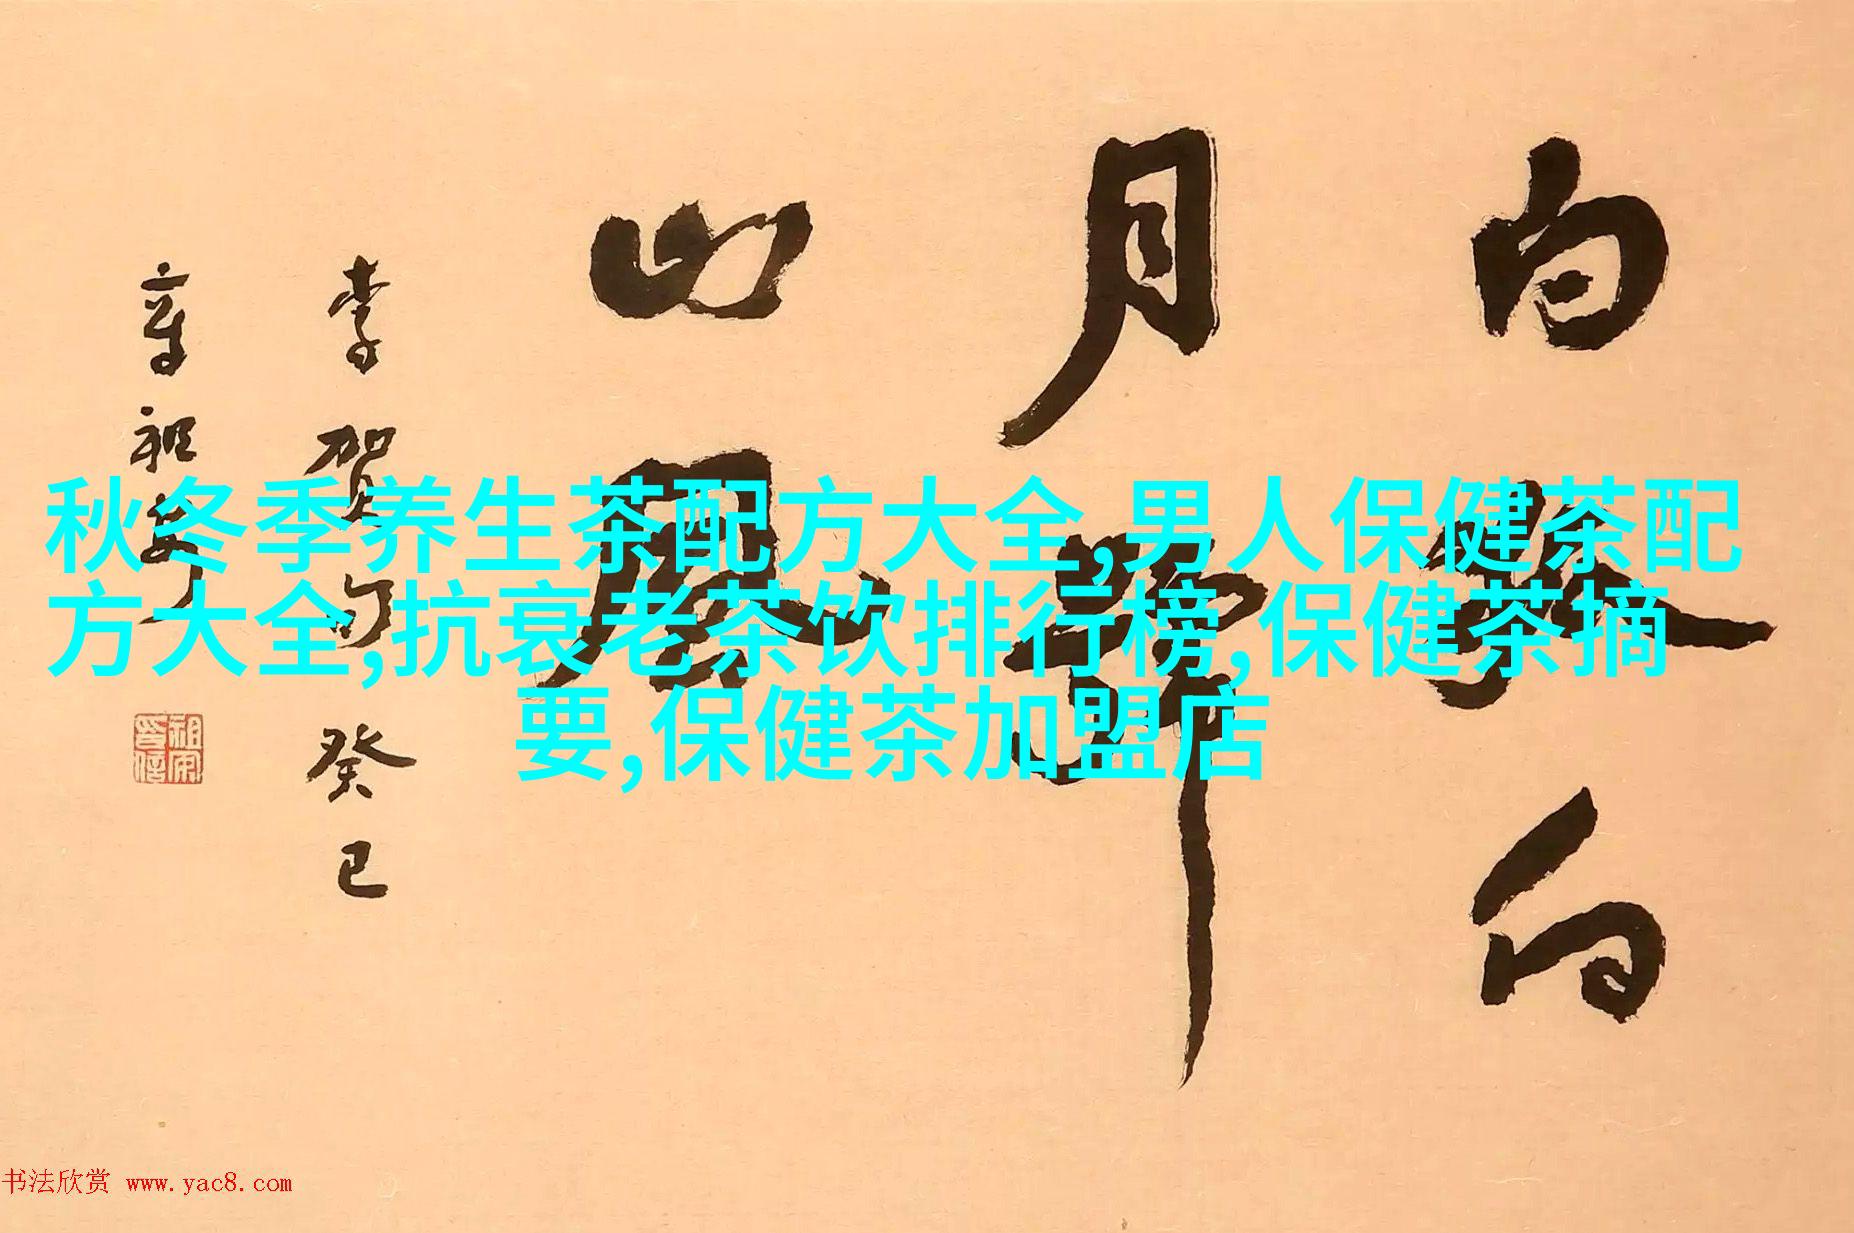 秋冬季养生茶配方大全,男人保健茶配
方大全,抗衰老茶饮排行榜,保健茶摘
要,保健茶加盟店
山風
李賀句癸巳
章祖安
书法欣赏 www.yac8.com